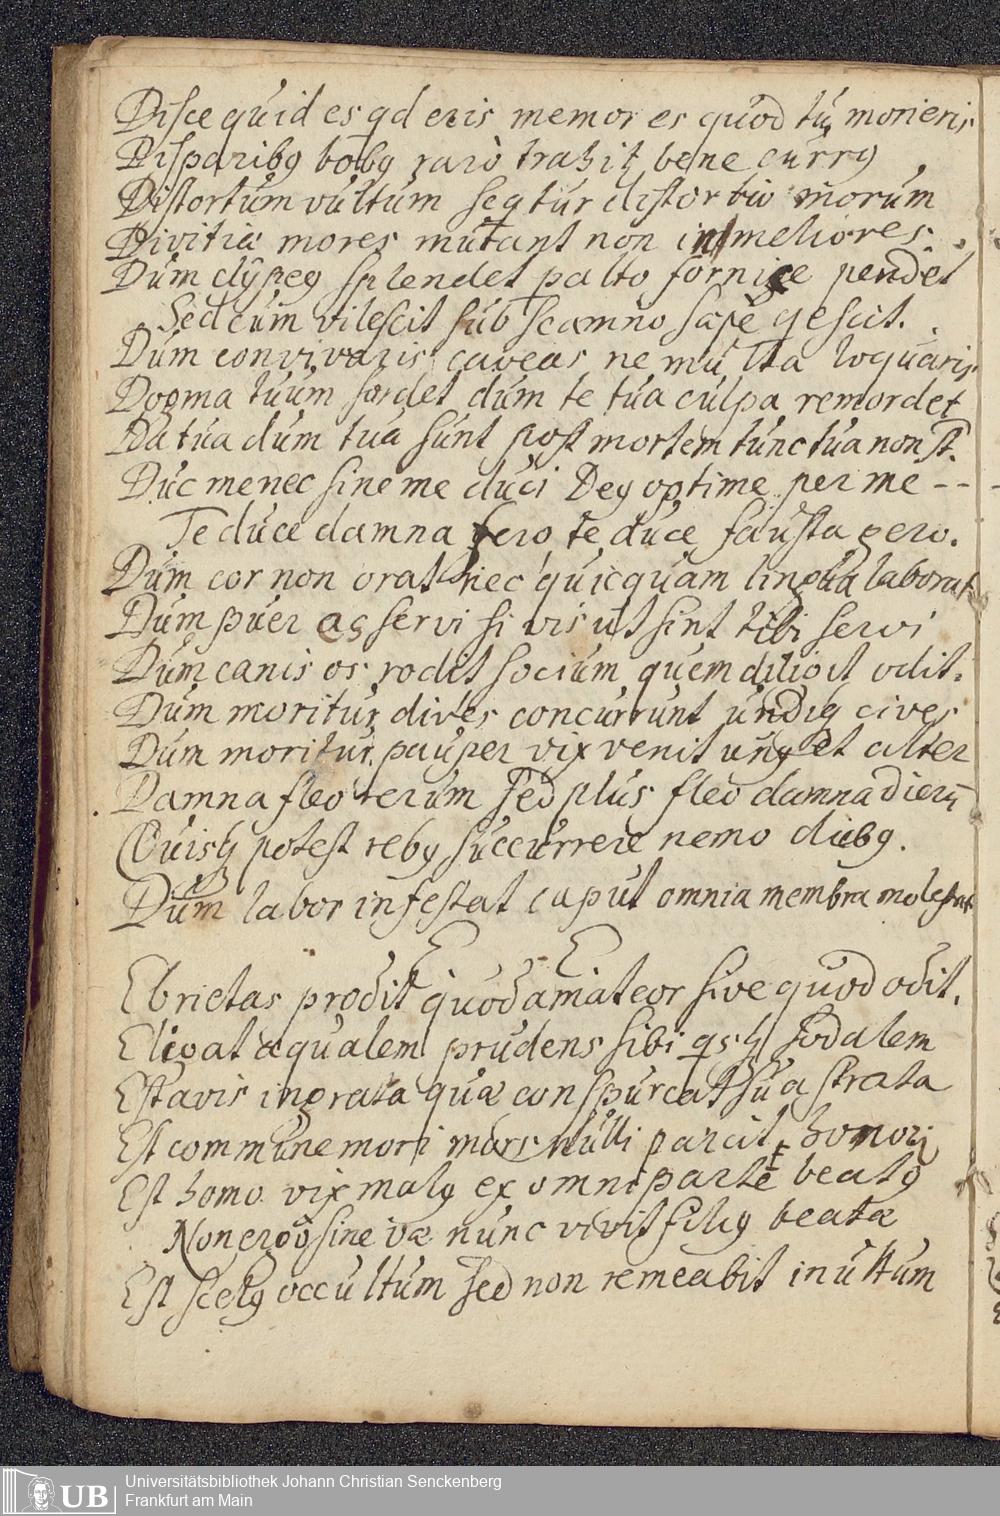 Disce quid es qd eris memor es quod tu morieris
Disparibq bobq raro trahit bene currq
Distortum vultum seqtur distortio morum
Divitiæ mores mutant non in meliores.
Dum clÿpeq splendet p alto fornice pendet
Sed cum vilescit sub scamno sæpe qescit.
Dum convivaris caveas ne multa loquaris
Dogma tuum sordet dum te tua culpa remordet
Da tua dum tua sunt post mortem tunc tua non st.
Duc me nec sine me duci Deq optime per me - -
Te duce damna fero te duce fausta gero.
Dum cor non orat nec quicquam lingua laborat
Dum puer as servi si vis ut sint tibi servi
Dum canis os rodit socium quem diligit odit.
Dum moritur dives concurrunt undiq cives
Dum moritur pauper vix venit unq et alter
Damna fleo rerum sed plus fleo damna dierū
Quisq potest rebq succurrere nemo diebq.
Dum labor infestat caput omnia membra molestat
E E
Ebrietas prodit quod amat cor sive quod odit.
Eligat æqualem prudens sibi qsq sodalem
Est avis ingrata quæ conspurcat sua strata
Est commune mori mors nulli parcit honori
Est homo vix malq ex omni parte beatq
Non ergo sine væ nunc vivit filiq beatæ
Est scelq occultum sed non remeabit inultum
Universitätsbibliothek Johann Christian Senckenberg
Frankfurt am Main
UB